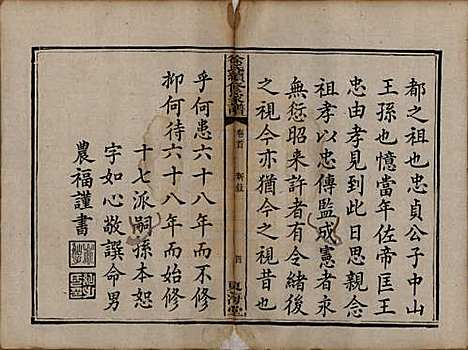 都之祖也忠貞公子中山
王孫也憶當年佐帝匡王
忠由孝見到此日思親念
祖孝以忠傳監成憲者求
無愆昭來許者有令緒後
之視今亦猶今之視昔也
徐氏續修支譜
卷首
新敍
四
東海堂
乎何患六十八年而不修
抑何待六十八年而始修
十七派嗣孫本恕
字如心敬譔命男
農福謹書